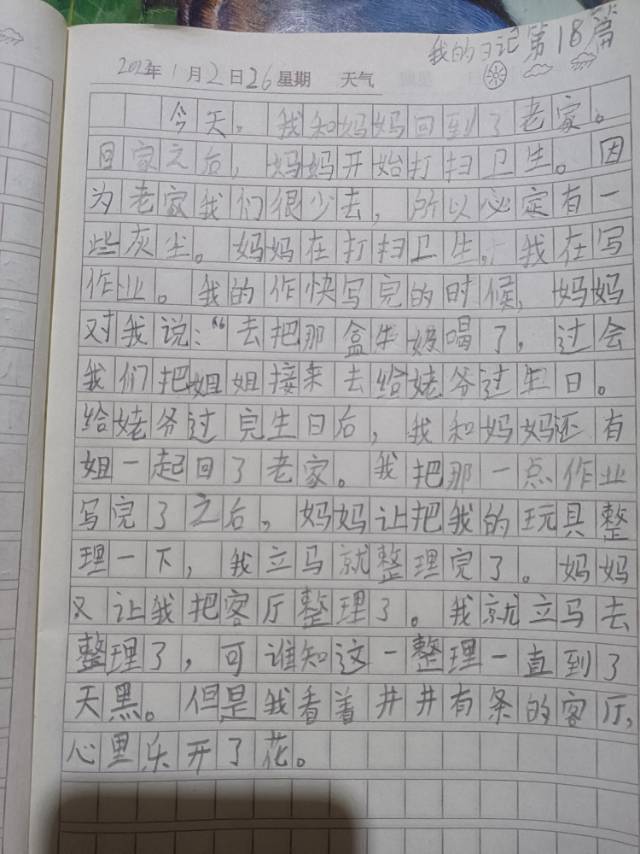 我的日记第18篇
2023年1月2日26星期 天气
今天。我和妈妈回到了老家。
回家之后，妈妈开始打扫卫生。因
为老家我们很少去，所以必定有一
些灰尘。妈妈在打扫卫生，我在写
作业。我的作快写完的时候，妈妈
对我说：“去把那盒牛奶喝了，过会
我们把姐姐接来去给姥爷过生日。
给姥爷过完生日后，我和妈妈还有
姐一起回了老家。我把那一点作业
写完了之后，妈妈让把我的玩具整
理一下，我立马就整理完了。妈妈
又让我把客厅整理了。我就立马去
整理了，可谁知这一整理一直到了
天黑。但是我看着井井有条的客厅，
心里乐开了花。